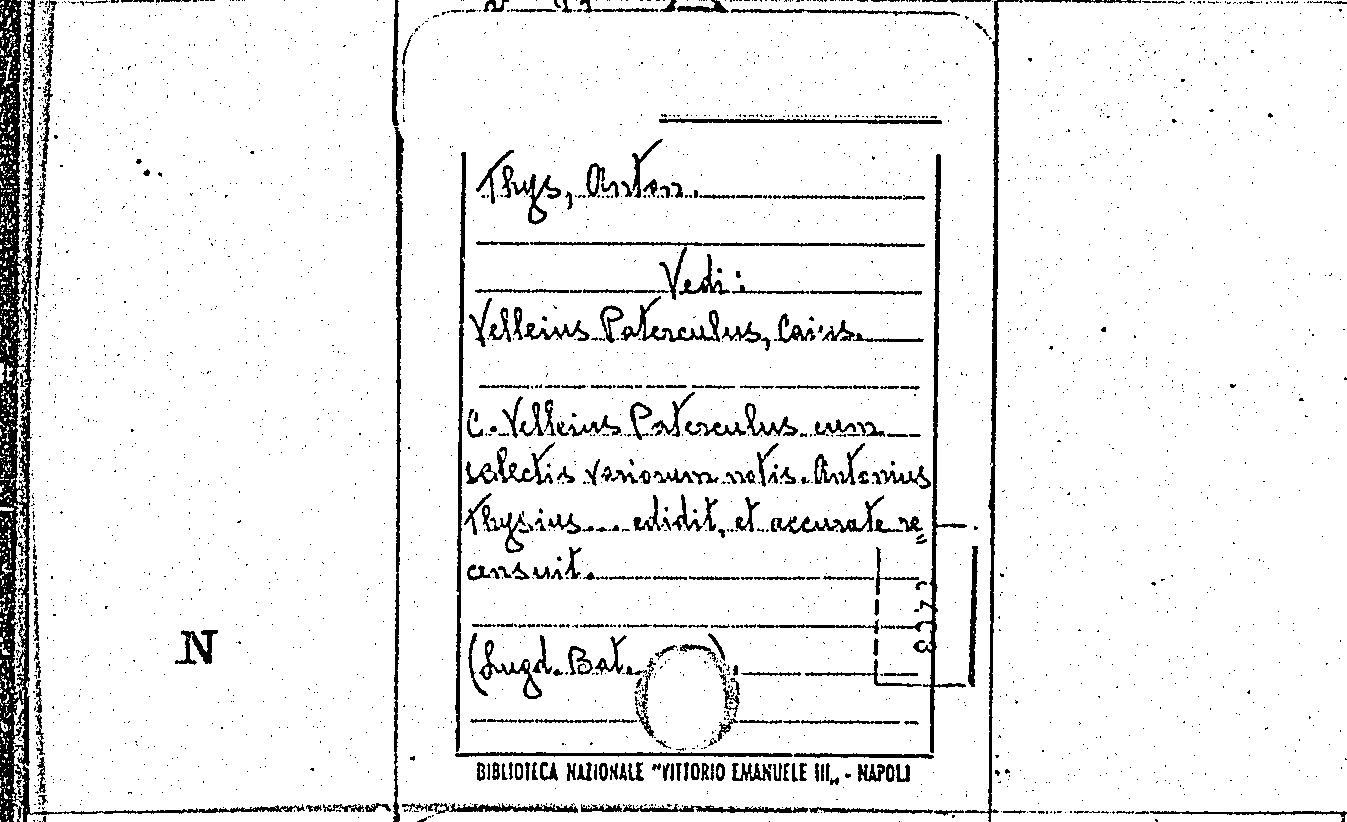 Thys, Anton.
Vedi:
Velleius Paterculus, Caius.
C. Velleius Paterculus cum
selectis variorum notis. Antonius
Thysius... edidit, et accurate re„
censuit.
(Lugd. Bat. ).
N
BIBLIOTECA NAZIONALE "VITTORIO EMANUELE III„ - NAPOLI